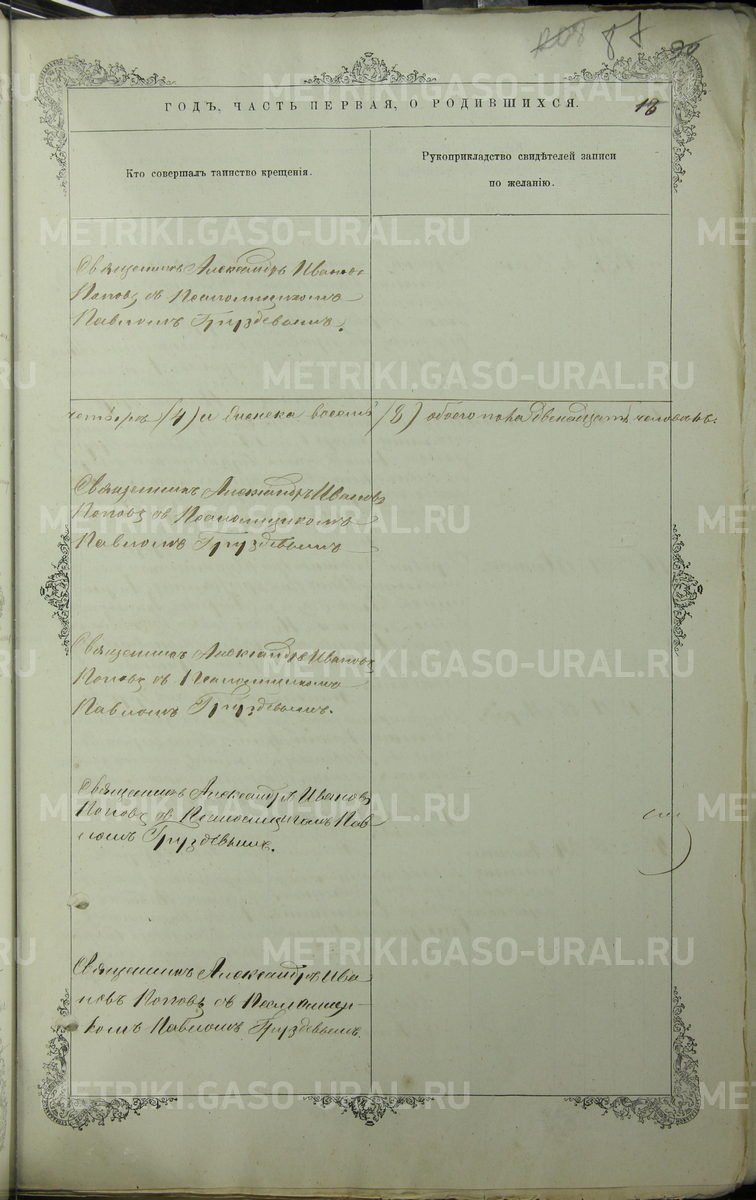 87
ГОДЪ, ЧАСТЬ ПЕРВАЯ, О РОДИВШИХСЯ.
18
Кто совершалъ таинство крещенія.
Рукоприкладство свидѣтелей записи
по желанію.
Священникъ Александръ Ивановъ
Поповъ съ Псаломщикомъ
Павломъ Груздевымъ.
(4) и женска восемь (8) обоего пола двенадцать человѣкъ:
Священникъ Александръ Ивановъ
Поповъ съ Псаломщикомъ
Павломъ Груздевымъ
Священникъ Александръ Ивановъ
Поповъ съ Псаломщикомъ
Павломъ Груздевымъ.
Священникъ Александръ Ивановъ
Поповъ съ Псаломщикомъ Пав-
ломъ Груздевымъ.
Священникъ Александръ Ива
новъ Поповъ съ Псаломщи-
комъ Павломъ Груздевымъ.
METRIKI.GASO-URAL.RU